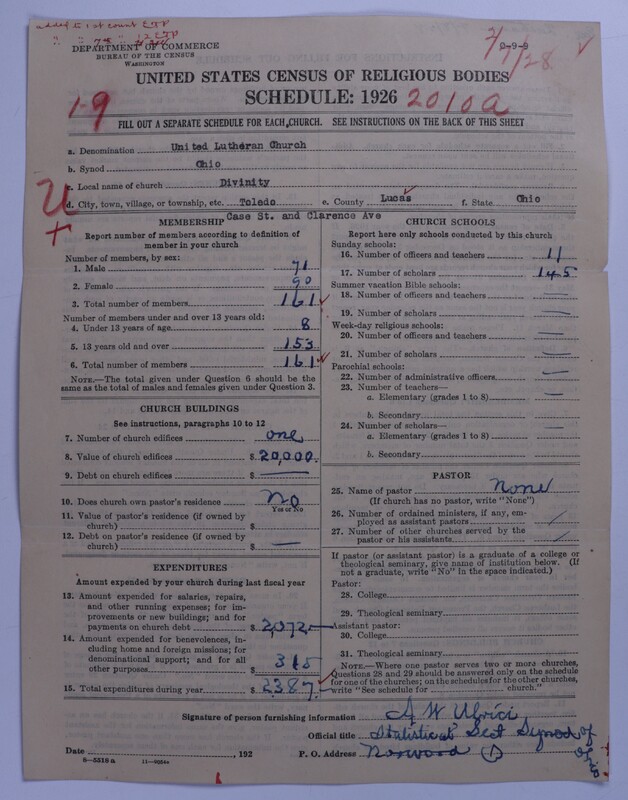 added to 1st count
DEPARTMENT OF COMMERCE
BUREAU OF THE CENSUS
WASHINGTON
9-9-9
2/7/28
UNITED STATES CENSUS OF RELIGIOUS BODIES
SCHEDULE: 1926
2010a
1-9
FILL OUT A SEPARATE SCHEDULE FOR EACH CHURCH. SEE INSTRUCTIONS ON THE BACK OF THIS SHEET
a. Denomination United Lutheran Church
b. Synod Ohio
c. Local name of church Divinity
d. City, town, village, or township, etc. Toledo e. County Lucas f. State Ohio
Case St. and Clarence Ave
MEMBERSHIP
Report number of members according to definition of
member in your church
Number of members, by sex:
1. Male 71
2. Female 90
3. Total number of members 161
Number of members under and over 13 years old:
4. Under 13 years of age 8
5. 13 years old and over 153
6. Total number of members 161
NOTE.—The total given under Question 6 should be the
same as the total of males and females given under Question 3.
CHURCH BUILDINGS
See instructions, paragraphs 10 to 12
7. Number of church edifices one
8. Value of church edifices $ 20,000.
9. Debt on church edifices $ —
10. Does church own pastor's residence No
Yes or No
11. Value of pastor's residence (if owned by
church) $
12. Debt on pastor's residence (if owned by
church) $ —
EXPENDITURES
Amount expended by your church during last fiscal year
13. Amount expended for salaries, repairs,
and other running expenses; for im-
provements or new buildings; and for
payments on church debt $ 2,072
14. Amount expended for benevolences, in-
cluding home and foreign missions; for
denominational support; and for all
other purposes $ 315
15. Total expenditures during year $ 2387
CHURCH SCHOOLS
Report here only schools conducted by this church
Sunday schools:
16. Number of officers and teachers 11
17. Number of scholars 145
Summer vacation Bible schools:
18. Number of officers and teachers —
19. Number of scholars —
Week-day religious schools:
20. Number of officers and teachers —
21. Number of scholars —
Parochial schools:
22. Number of administrative officers —
23. Number of teachers—
a. Elementary (grades 1 to 8) —
b. Secondary
24. Number of scholars— —
a. Elementary (grades 1 to 8) —
b. Secondary
PASTOR
25. Name of pastor None
(If church has no pastor, write "None")
26. Number of ordained ministers, if any, em-
ployed as assistant pastors
27. Number of other churches served by the
pastor or his assistants
If pastor (or assistant pastor) is a graduate of a college or
theological seminary, give name of institution below. (If
not a graduate, write "No" in the space indicated.)
Pastor:
28. College
29. Theological seminary
Assistant pastor:
30. College
31. Theological seminary
NOTE.—Where one pastor serves two or more churches,
Questions 28 and 29 should be answered only on the schedule
for one of the churches; on the schedules for the other churches,
write "See schedule for church."
Signature of person furnishing information A W Ulrici
Official title Statistical Sect Synod of Ohio
Date , 192 P. O. Address Norwood
8—5518 a